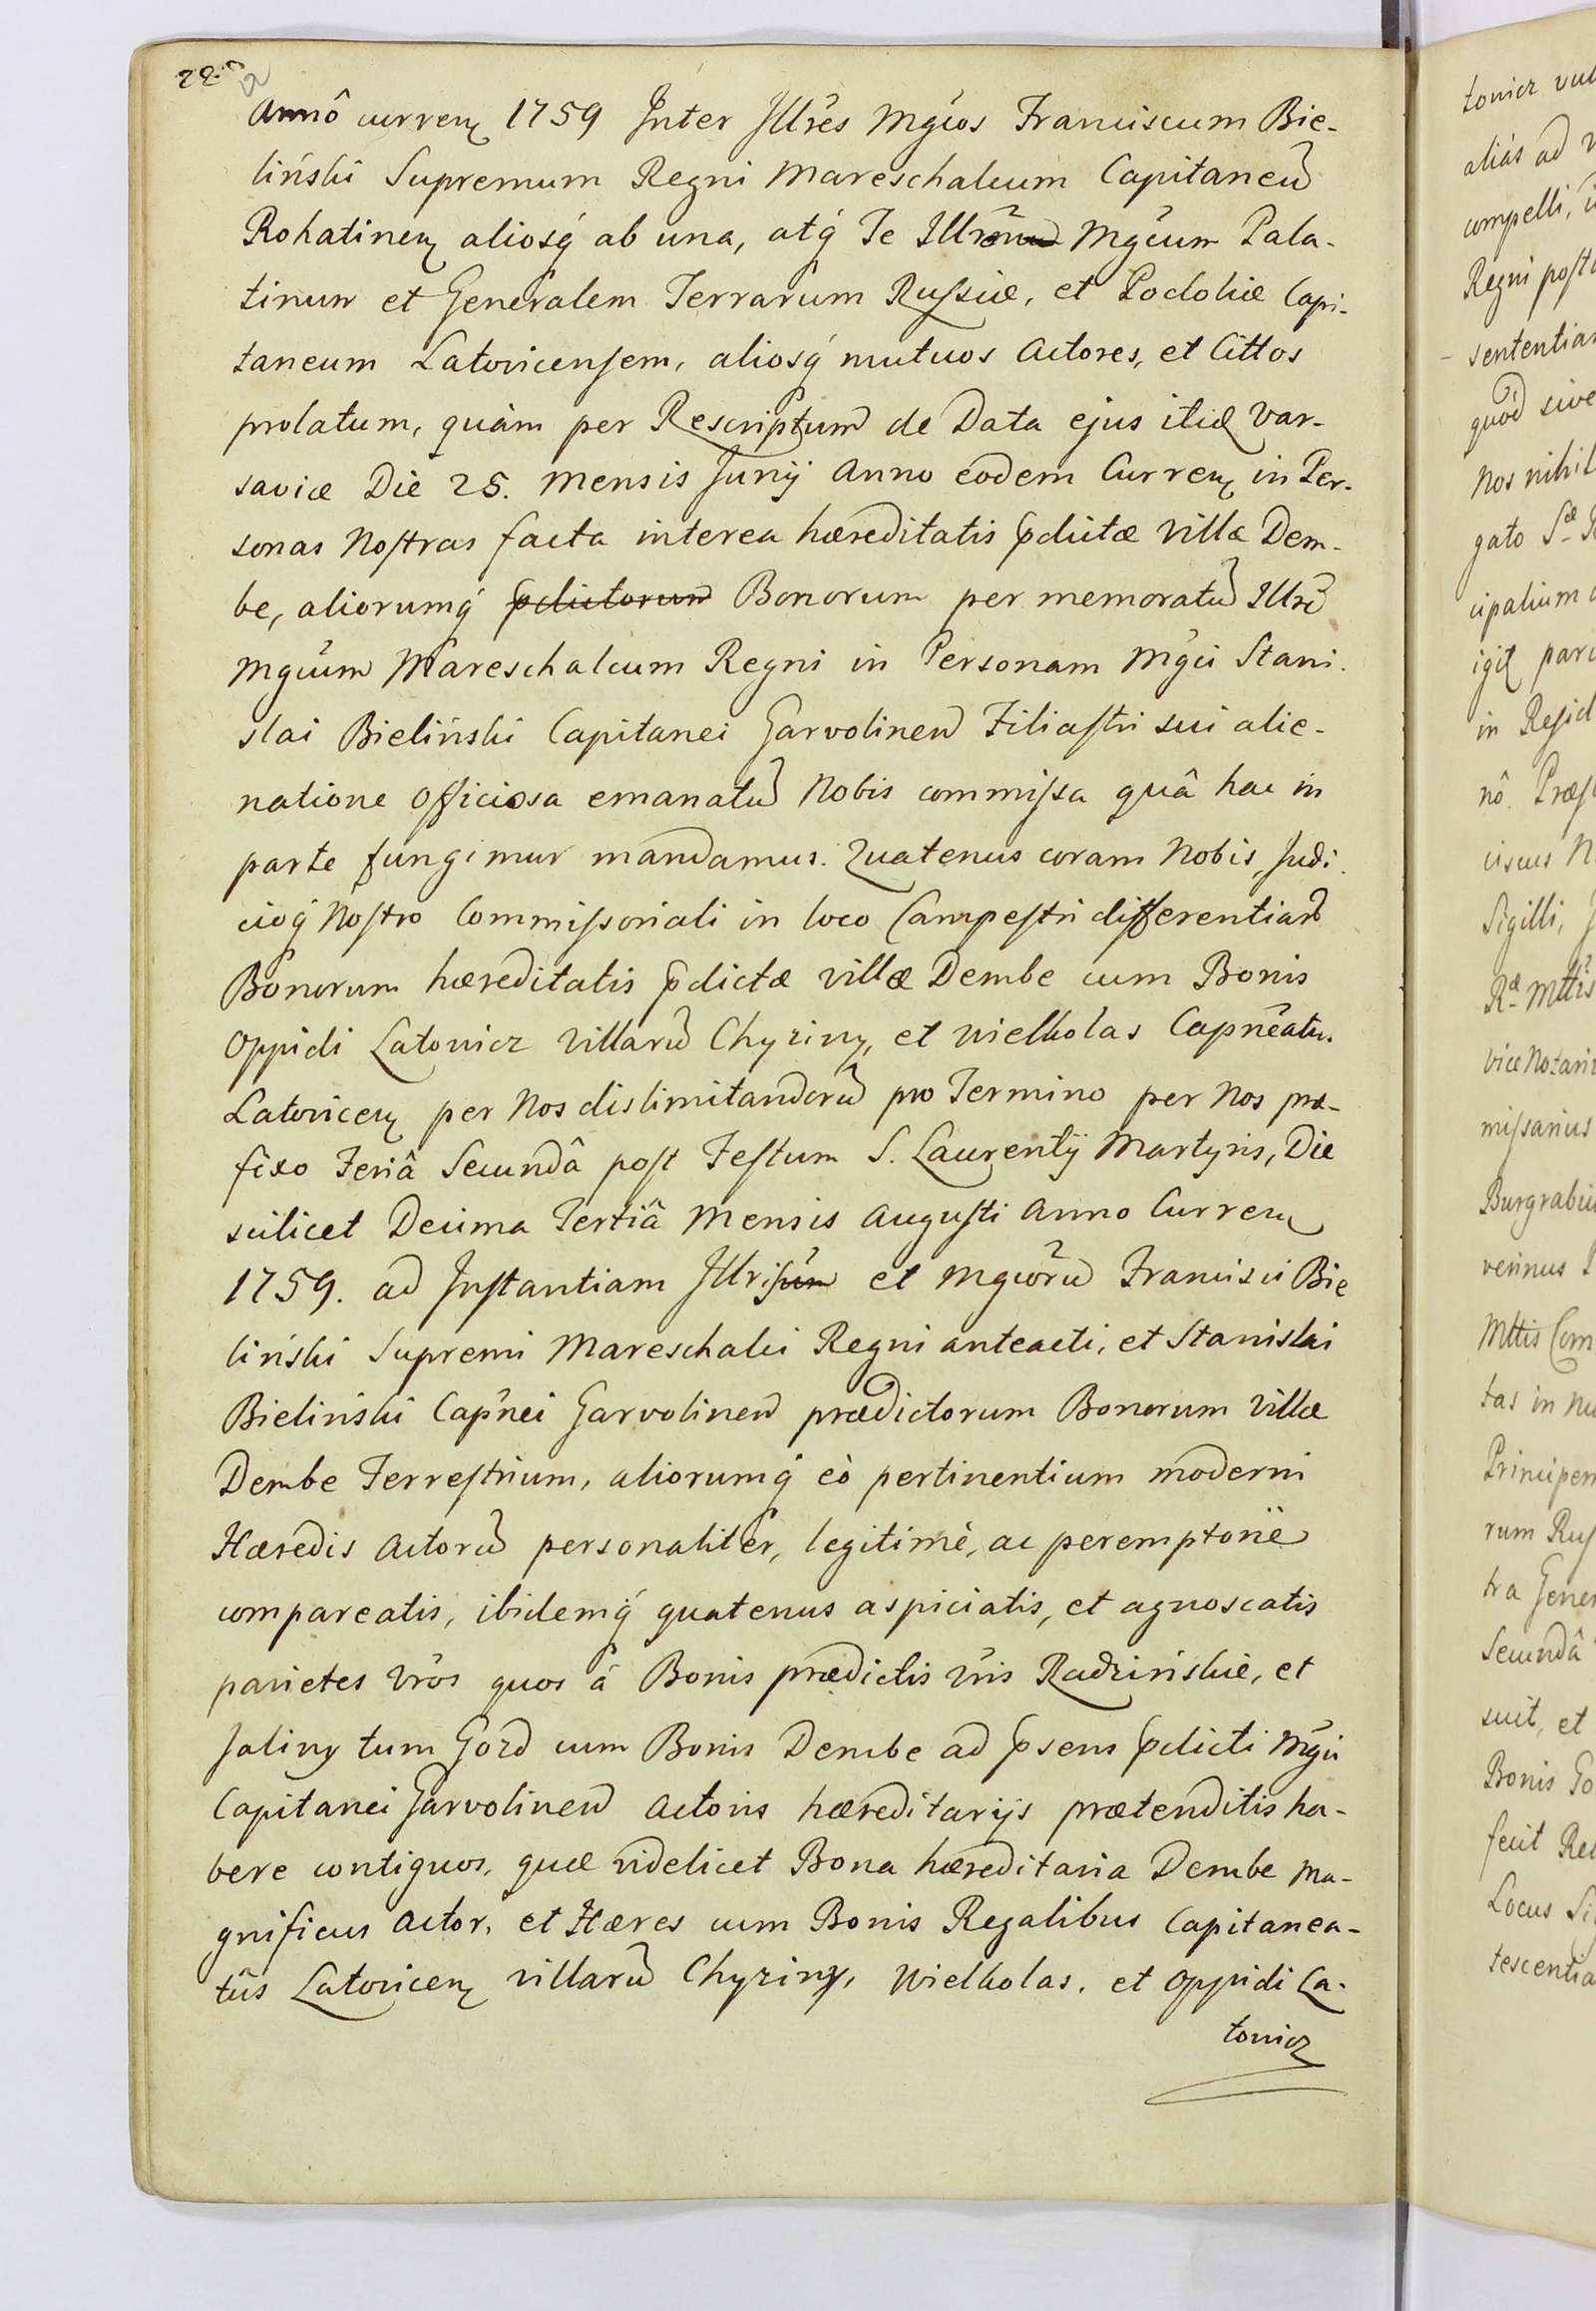 Annô currenꝫ 1759 Inter Jllres Mgcos Franciscum Bie-
liński Supremum Regni Mareschalcum Capitaneu͂
Rohatinenꝫ aliosq́ ab una, atq́ Te Mgcum Pala-
tinum et Generalem Terrarum Russiæ, et Podoliæ Capi-
taneum Latovicensem, aliosq́ mutuos Actores, et Cittos
prolatum, quàm per Rescriptum de Data ejus itid Var-
saviæ Die 25. Mensis Junij Anno eodem Currenꝫ in Per-
sonas Nostras facta interea hæreditatis pdictæ Villæ Dem-
be, aliorumq́ pdictorum Bonorum per memoratu͂ Illre͂
Mgcum Mareschalcum Regni in Personam Mgci Stani-
slai Bieliński Capitanei Garvolinen Filiastri sui alie-
natione Officiosa emanatu͂ Nobis commissa quâ hac in
parte fungimur mandamus. Quatenus coram Nobis, Judi-
cioq́ Nostro Commissoriali in loco Campestri differentiar͂
Bonorum hæreditatis pdictæ villæ Dembe cum Bonis
Oppidi Latowicz Villaru͂ Chyziny, et Wielkolas Capneatu.
Latovicenꝫ per Nos dislimitandoru͂ pro Termino per Nos præ-
fixo Feriâ Secundâ post Festum S. Laurentij Martyris, Die
scilicet Decima Tertiâ Mensis Augusti Anno Currenꝫ
1759. ad Instantiam et Mgcoru͂ Francisci Bie
liński Supremi Mareschalci Regni anteacti, et Stanislai
Bieliński Capnei Garvolinen prædictorum Bonorum Villæ
Dembe Terrestrium, aliorumq́ eò pertinentium moderni
Hæredis Actoru͂ personaliter, legitimè, ac peremptoriè
compareatis, ibidemq́ quatenus aspiciatis, et agnoscatis
parietes Vros quos á Bonis prædictis Vris Radzińskie, et
Jaliny tum Gozd cum Bonis Dembe ad psens pdicti Mgci
Capitanei Garvolinen Actoris hæreditarijs prætenditis ha-
bere contiguos, quæ videlicet Bona hæreditaria Dembe Ma-
gnificus Actor, et Hæres cum Bonis Regalibus Capitanea-
tûs Latovicenꝫ villaru͂ Chyziny, Wielkolas, et Oppidi La-
towicz